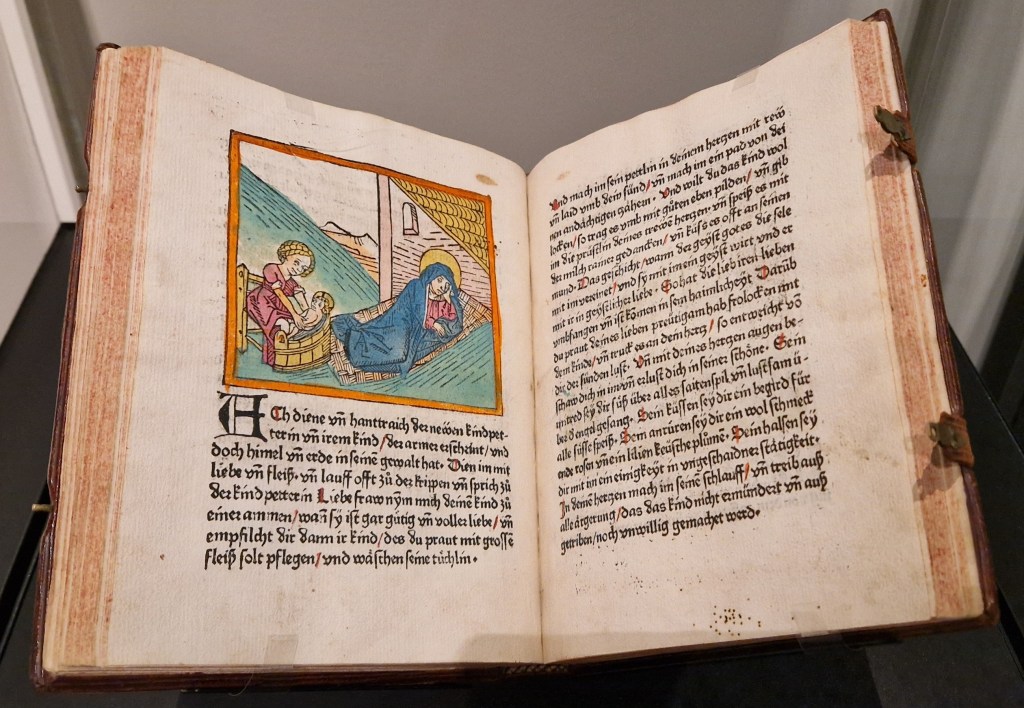 ECh diene vñ hanttraich der newen kindpet-
terin vñ irem kind/der armer erscheint/vnd
doch himel vñ erde in seinē gewalt hat. Dien im mit
liebe vñ fleiß. vñ lauff offt zů der krippen vñ sprich zů
der kind petterin Liebe fraw nym mich deinē kind zů
einer ammen/wañ sy ist gar gütig vñ voller liebe/vñ
empfilcht dir dann ir kind/des du praut mit grossē
fleiß solt pflegen/vnd wäschen seine tüchlin.
Und mach im sein pettlin in deinem hertzen mit rew
vñ laid vmb dein sünd/vñ mach im ein pad von dei
nen andächtigen zähern. Und wilt du das kind wol
locken/so trag es vmb mit gůten eben pilden/vñ gib
im die prüstlin deines trewē hertzen. vñ speiß es mit
der milch rainer gedancken/vñ küß es offt an seinen
mund. Das geschicht/wann der geyst gotes die sele
mit im vereinet/vnd sy mit im ein geyst wirt vnd er
mit ir in geystlicher liebe. So hat die lieb iren lieben
vmbfangen vñ ist komen in sein haimlicheyt Darūb
du praut deines lieben preütigam hab frolocken mit
dem kinde/vñ truck es an dein hertz/so entweicht vō
dir der sünden lust. Vñ mit deines hertzen augen be-
schaw dich in im vñ erlust dich in seiner schöne. Sein
untred sey dir süß über alles saitenspil vñ lustsam ü-
ber d engel gesang. Sein küssen sey dir ein begird für
alle süsse speiß. Sein anrüren sey dir ein wol schmeck
ende rosen vñ ein lilien keüsche plüme. Sein halsen sey
dir mit im ein einigkeyt in vngeschaidner stätigkeit.
In deinē hertzen mach im seinē schlauff/vñ treib auß
alle ärgerung/das das kind nicht ermündert vñ auß
getriben/noch vnwillig gemachet werd.